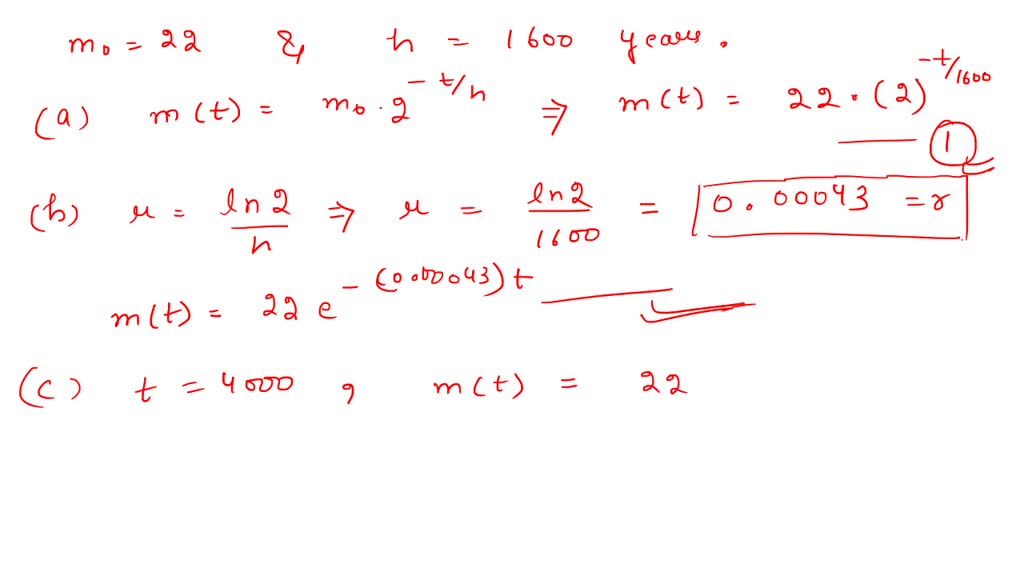 m₀ = 22 & h = 1600 years.
(a) m(t) = m₀ · 2^(-t/h) ⇒ m(t) = 22 · (2)^(-t/1600)
— ①
(b) r = ln2/h ⇒ r = ln2/1600 = 0.00043 = r
m(t) = 22 e^(-(0.00043)t)
(c) t = 4000 , m(t) = 22